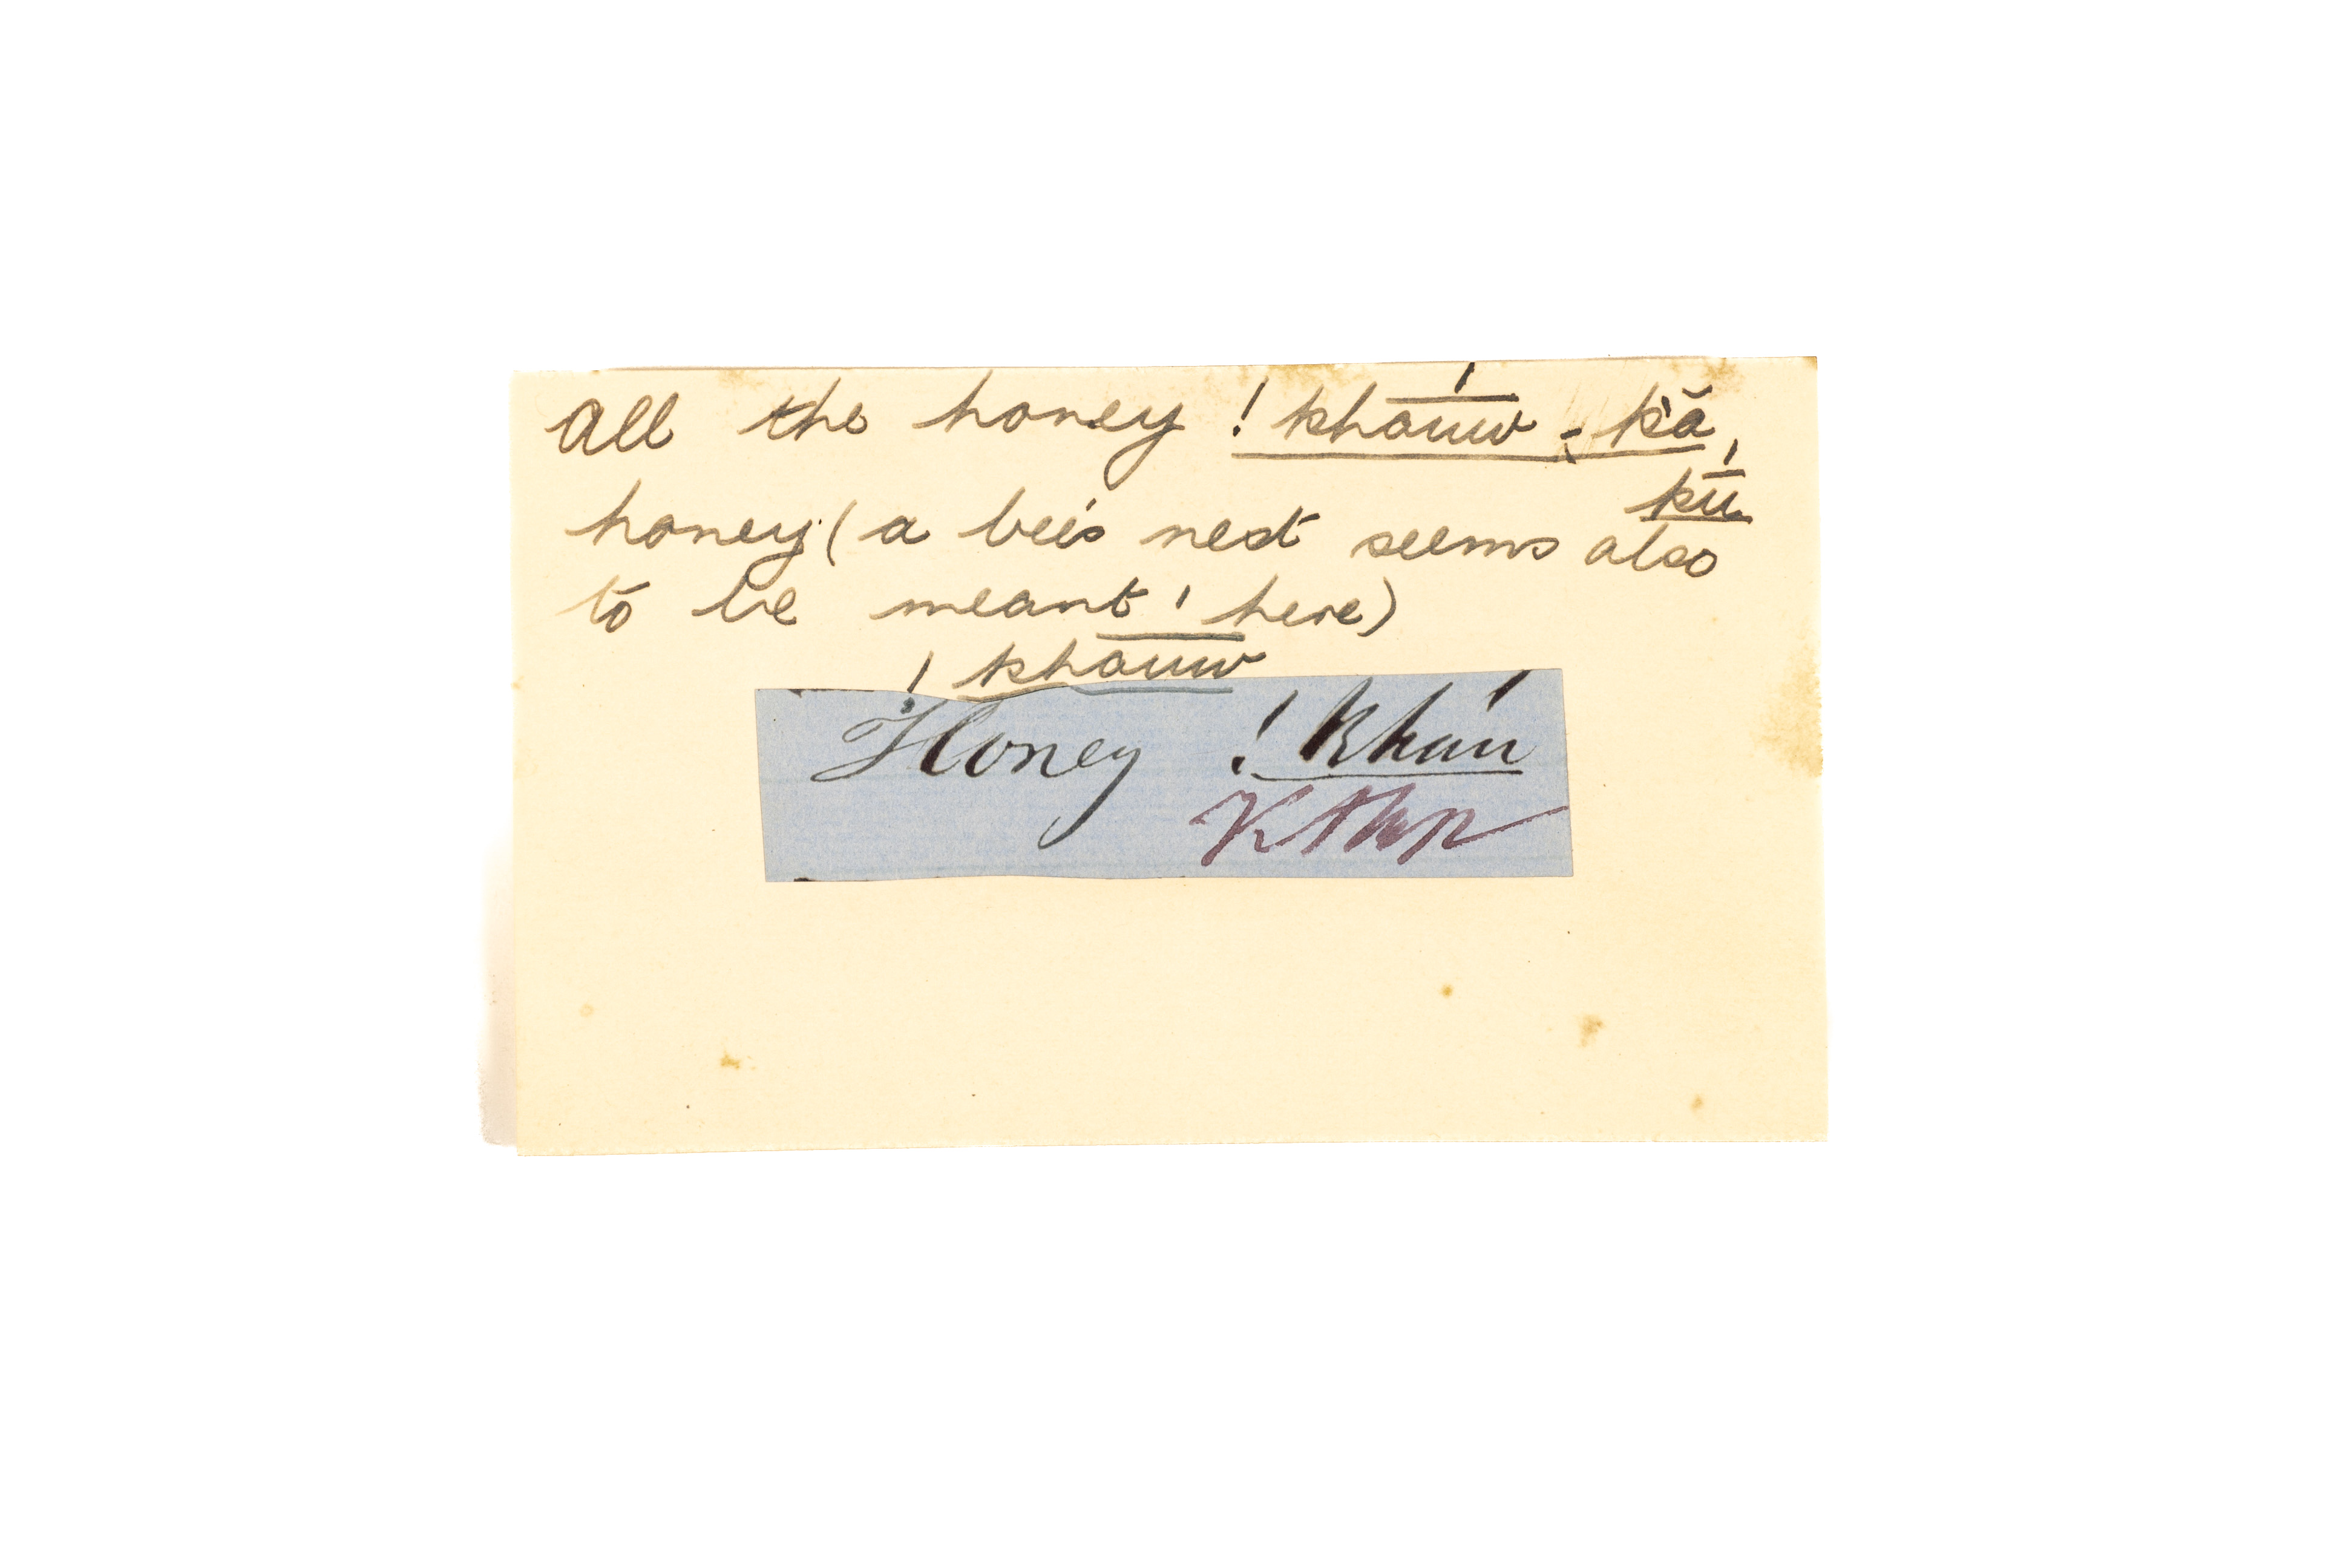 All the honey ! khāuẃ-k'ă,
kū́
honey (a bee's nest seems also
to be meant here)
! khāúw
Honey ! kháu